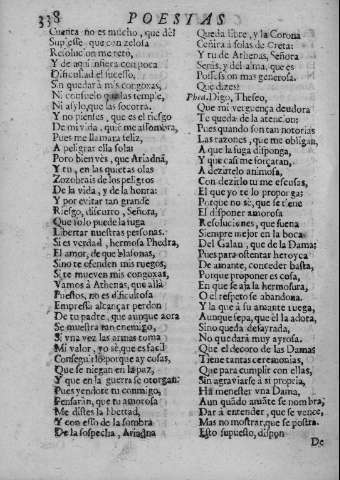 338 POESIAS
Cuenta no es mucho, que del
Supiesse, que con zelosa
Resolucion me reto,
Y de aqui infiera con poca
Dificultad el sucesso,
Sin que darà mis congoxas,
Ni consuelo que las temple,
Ni asylo, que las socorra.
Y no pienses, que es el riesgo
De mi vida, que me assombra,
Pues me llamara feliz,
A peligrar ella sola:
Pero bien vès, que Ariadna,
Y tu, en las quietas olas
Zozobrais de los peligros
De la vida, y de la honra:
Y por evitar tan grande
Riesgo, discurro, Señora,
Que solo puede la fuga
Libertar nuestras personas.
Si es verdad, hermosa Phedra,
El amor, de que blasonas,
Sino te ofenden mis ruegos,
Si te mueven mis congoxas,
Vamos à Athenas, que allà
Puestos, no es dificultosa
Empressa alcançar perdon
De tu padre, que aunque aora
Se muestra tan enemigo,
Si vna vez las armas toma
Mi valor, yo sè, que es facil
Conseguirlo; porque ay cosas,
Que se niegan en la paz,
Y que en la guerra se otorgan:
Pues vendote tu conmigo,
Pensaràn, que tu amorosa
Me distes la libertad,
Y con esso de la sombra
De la sospecha, Ariadna
Queda libre, y la Corona
Ceñirà à solas de Creta:
Y tu de Athenas, Señora
Seràs, y del alma, que es
Possession mas generosa.
Que dizes?
Phed. Digo, Theseo,
Que mi verguença deudora
Te queda de la atencion;
Pues quando son tan notorias
Las razones, que me obligan,
A que la fuga disponga,
Y que casi me forçaran,
A dezirtelo animosa,
Con dezirlo tu me escusas,
El que yo te lo proponga:
Porque no sè, que se tiene
El disponer amorosa
Resoluciones, que suena
Siempre mejor en la boca
Del Galan, que de la Dama:
Pues para ostentar heroyca
De amante, conceder basta,
Porque proponer es cosa,
En que se aja la hermosura,
O el respeto se abandona.
Y la que à su amante ruega,
Aunque sepa, que èl la adora,
Sino queda desayrada,
No quedarà muy ayrosa.
Que el decoro de las Damas
Tiene tantas ceremonias,
Que para cumplir con ellas,
Sin agraviarse à si propria,
Ha menester vna Dama,
Aun quãdo amãte se nombra,
Dar à entender, que se vence,
Mas no mostrar, que se postra.
Esto supuesto, dispon
De